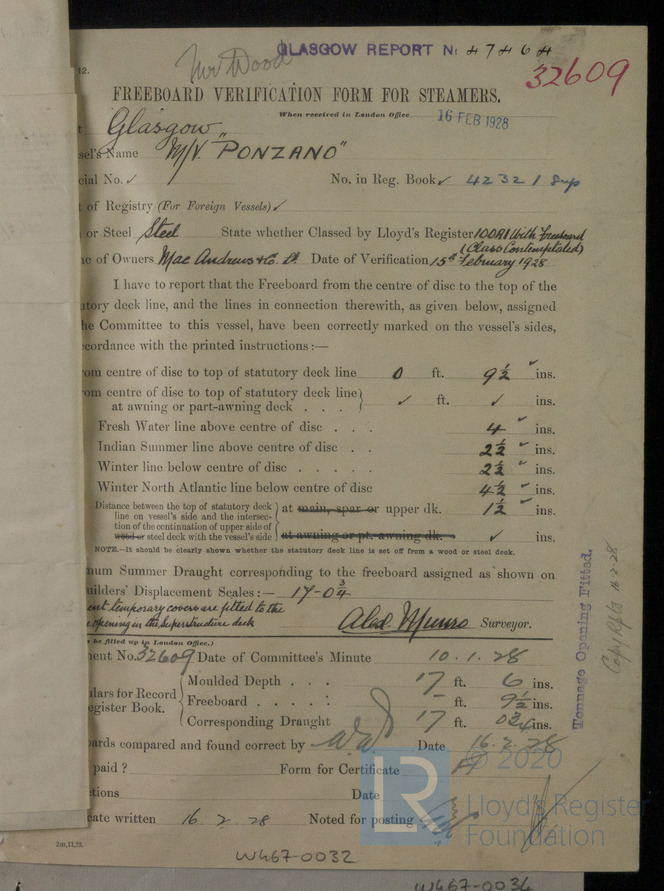 Mr Wood GLASGOW REPORT No 47464
12.
32609
FREEBOARD VERIFICATION FORM FOR STEAMERS.
When received in London Office 16 FEB 1928
t Glasgow
sel's Name M/V "PONZANO"
cial No. ✓ No. in Reg. Book ✓ 42321 Sup
t of Registry (For Foreign Vessels) ✓
or Steel Steel State whether Classed by Lloyd's Register 100A1 With freeboard
(Class Contemplated)
e of Owners Mac Andrews & Co. Ld Date of Verification 15th February 1928
I have to report that the Freeboard from the centre of disc to the top of the
tory deck line, and the lines in connection therewith, as given below, assigned
he Committee to this vessel, have been correctly marked on the vessel's sides,
ccordance with the printed instructions:—
om centre of disc to top of statutory deck line 0 ft. 9½ ins.
om centre of disc to top of statutory deck line
at awning or part-awning deck . . . ✓ ft. ✓ ins.
Fresh Water line above centre of disc . . . 4 ins.
Indian Summer line above centre of disc . . 2½ ins.
Winter line below centre of disc . . . . . 2½ ins.
Winter North Atlantic line below centre of disc 4½ ins.
Distance between the top of statutory deck
line on vessel's side and the intersec-
tion of the continuation of upper side of
wood or steel deck with the vessel's side
at main, spar or upper dk. 1½ ins.
at awning or pt. awning dk. ✓ ins.
NOTE.—It should be clearly shown whether the statutory deck line is set off from a wood or steel deck.
mum Summer Draught corresponding to the freeboard assigned as shown on
uilders' Displacement Scales:— 17-0¾
ent temporary covers are fitted to the
e opening in the Superstructure deck
Alex. Munro Surveyor.
o be filled up in London Office.)
ment No. 32609 Date of Committee's Minute 10.1.28
lars for Record
egister Book.
Moulded Depth . . . 17 ft. 6 ins.
Freeboard . . . . . - ft. 9½ ins.
Corresponding Draught 17 ft. 0¾ ins.
ards compared and found correct by Date 16.2.28
paid? Form for Certificate
ctions Date
cate written 16.2.28 Noted for posting
2m,11,23.
Tonnage Opening Fitted.
© 2020
Lloyd's Register
Foundation
W467-0032
W467-0034